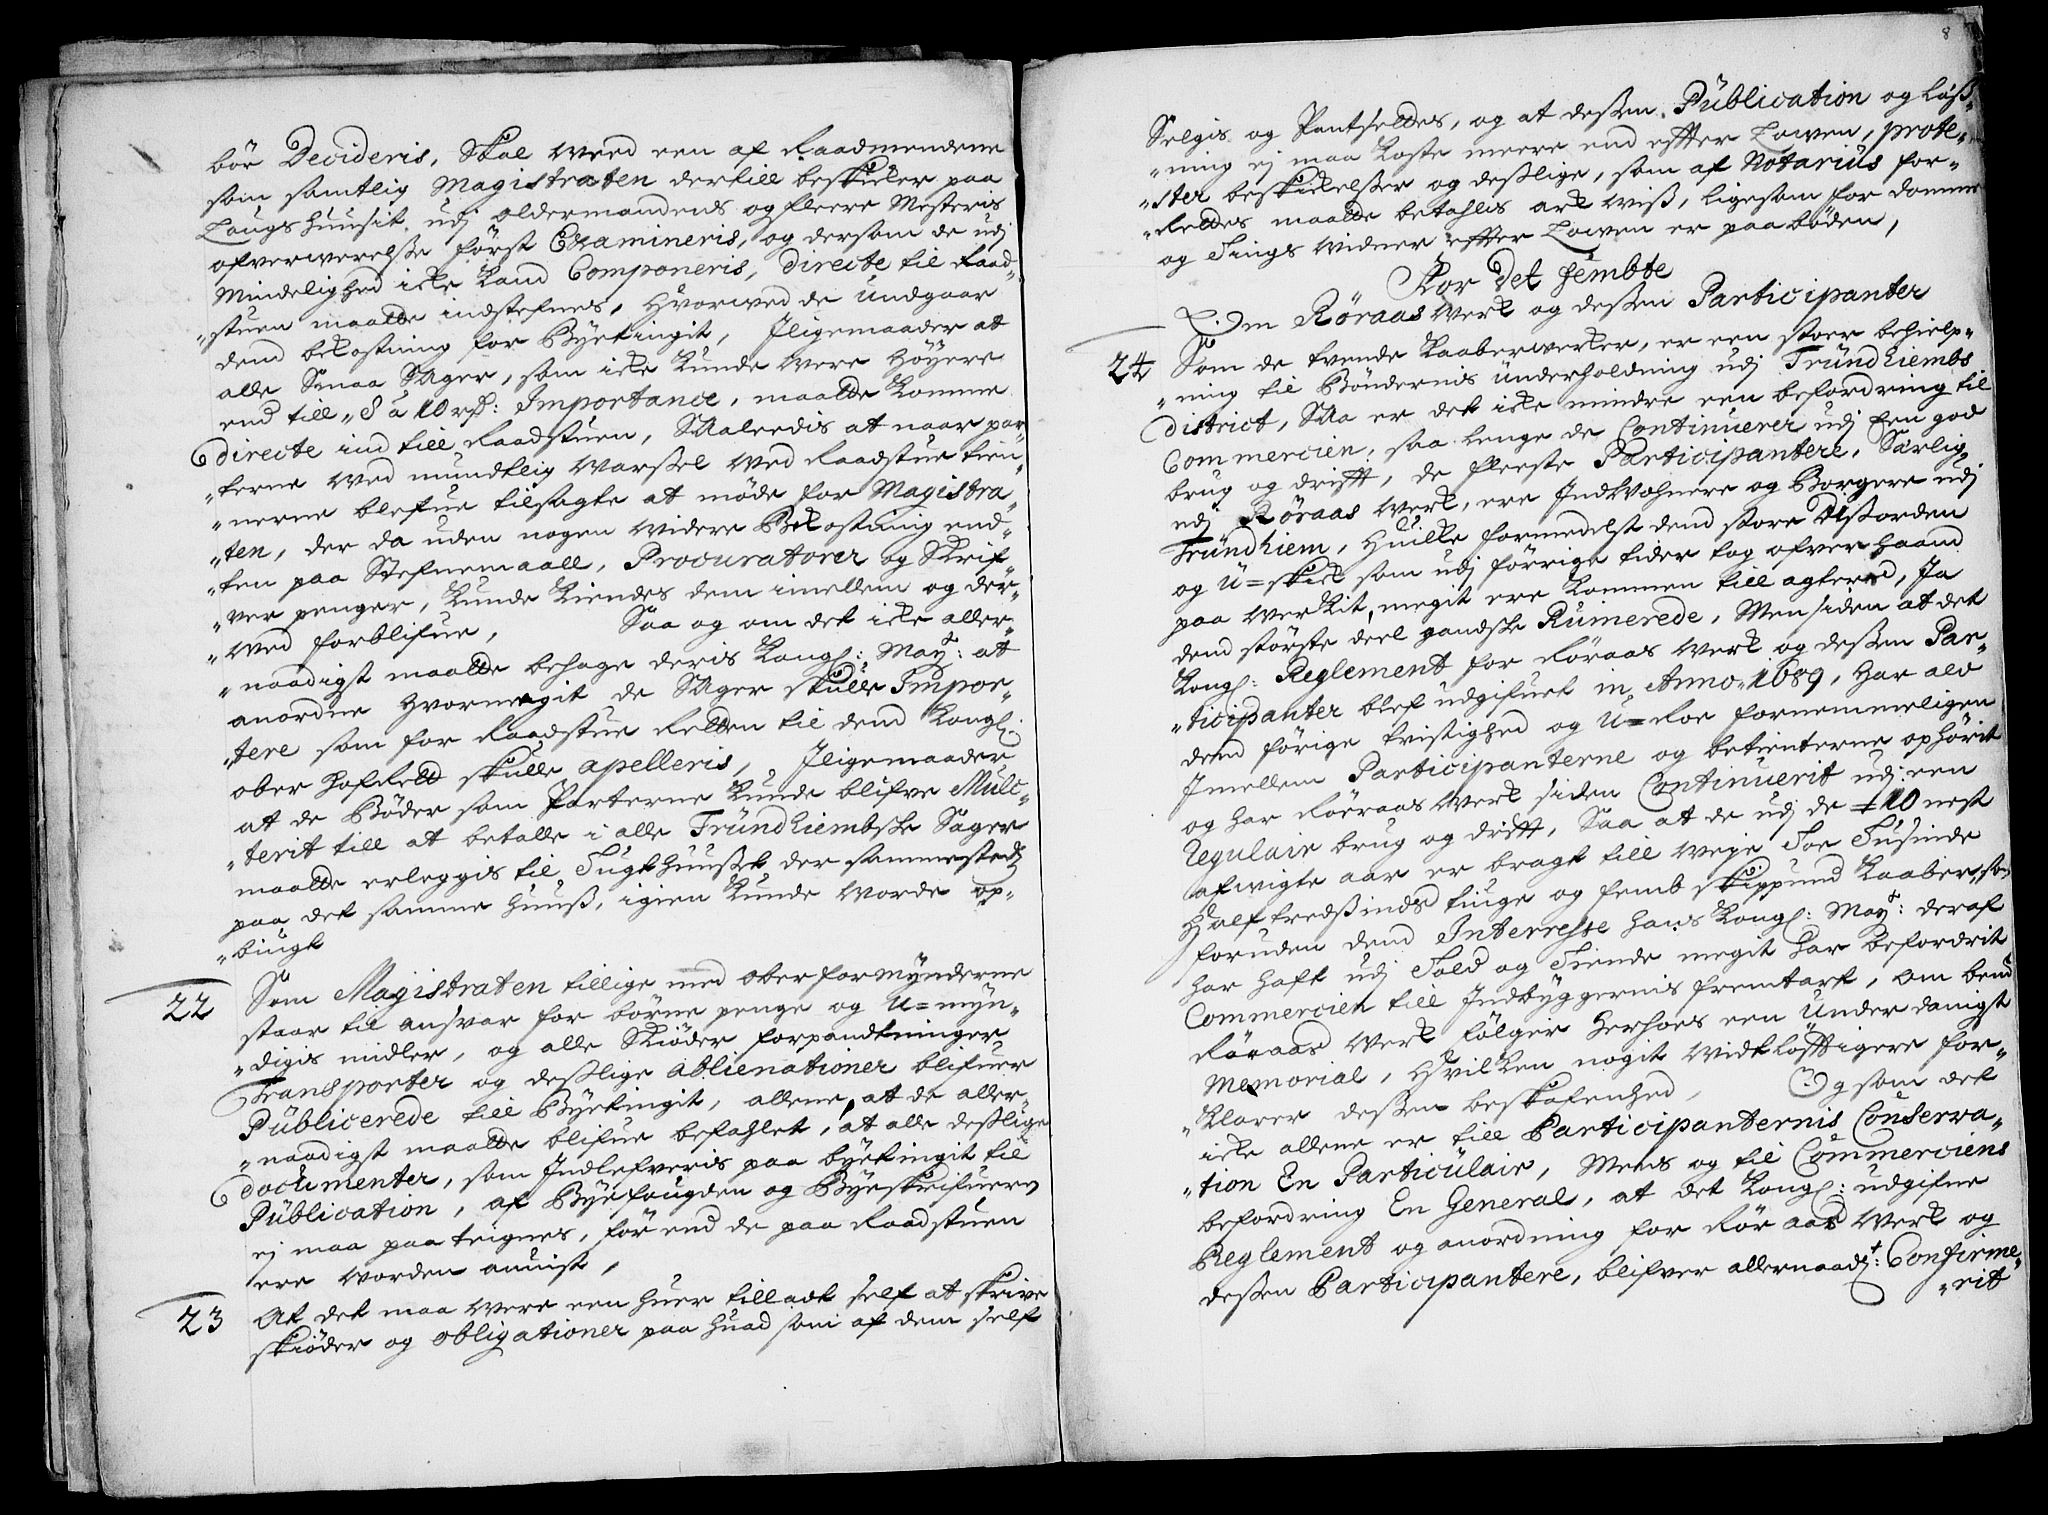 bör Decideris, Skal werd een af Raadmendene
som samtlig Magistraten dertill beskicker paa
Laugs huusit, udj oldermandens og fleere Mesteris
ofverwerelsse först Examineris, og dersom de udj
Mindelighed icke kand Componeris, directe til Raad-
„stuen maatte indstefnes, hvorved de undgaar
dend bekostning for Byetingit, Jligemaader at
alle Smaa Sager, som icke kunde were höyere
end till „8 a 10 rd: Importance, maatte komme
directe ind till Raadstuen, Saaledis at naar par-
„terne ved mundtlig warssel ved Raadstue tien-
„nerne blefue tilsagte at möde for Magistra-
„ten, der da uden nogen widere Bekostning end-
„ten paa Stefnemaall, Procuratorer og Skrif-
„ver penger, kunde kiendes dem imellem og der-
„wed forblifue, Saa og om det icke aller-
„naadigst maatte behage deris Kongl: Mayt: at
anordne hvormegit de Sager skulle Impor-
„tere som for Raadstue Retten til dend Kongl:
ober hofrett skulle apelleris, Jligemaader
at de Böder som Parterne kunde blifve Mulc-
„terit till at betalle i alle Tründhiembske Sager
maatte erleggis til Tugthuusset der sammesteds
paa det samme huuss, igien kunde worde op-
„bingt
22 Som Magistraten tillige med oberformynderne
staar til ansvar for börne penge og U=myn-
„digis midler, og alle Skiöder forpandtninger
Transporter og desslige ablienationer blifuer
Püblicerede till Byetingit, allene, at de aller-
„naadigst maatte blifue befahlet, at alle desslige
documenter, som Indlefveris paa byetingit til
Püblication, af Byefougden og Byeskrifueren
ej maa paateignes, för end de paa Raadstuen
ere worden anuist,
23 At det maa were een huer tilladt self at skrive
skiöder og obligationer paa huad som af dem self
8
Selgis og Pantsettes, og at dessen Püblication og Läss-
„ning ej maa koste meere end effter Lowen, prote-
„ster beskickelsser og desslige, som af Notariüs for-
„rettes maatte betahlis ark wiss, ligesom for domme
og Tings widner effter Lowen er paaböden,
For det fembte
Om Röraas werk og dessen Participanter
24 Som de tvende kaaberwerker, er een stoer behielp-
„ning til Böndernis underholdning udj Trundhiembs
district, Saa er det icke mindre een befordring til
Commercien, saa lenge de Continuerer udj een god
brug og drifft, de fleeste Participantere, Særlig
udj Röraas werk, ere Indwohnere og Borgere udj
Trundhiem, huilke formedelst dend store Disorden
og U=skick som udj förrige tider tog ofverhaand
paa werkit, megit ere kommen till agters, Ja
dend störste deel gandske Ruinerede, Men siden at det
Kongl: Reglement for Röraas werk og dessen Par-
„ticipanter blef udgifuet in Anno 1689, har ald
dend förige tvistighed og U=Roe fornemmeligen
Imellem Participanterne og betienterne ophörit
og har Röraas werk siden Continuerit udj een
Regulair brug og drifft, Saa at de udj de 10 nest
afwigte aar er bragt till weye Toe Tusinde
Halftredssinds tiuge og femb skippund kaaber
foruden dend Interresse hans Kongl: Mayt: deraf
har haft udj Told og Tiende megit har befordrit
Commercien till Indbyggernis fremtarf, om bemt
Röraas werk fölger herhoes een Underdanigst
Memorial, hvilken nogit widtlöfftigere for-
„klarer dessen beskafenhed, Og som det
icke allene er till Participanternis Conserva-
„tion En Particülair, Mens og til Commerciens
befordring En General, at det Kongl: udgifne
Reglement og anordning for Röraas werk og
dessen Participantere, blifver allernaadst: Confirme-
„rit